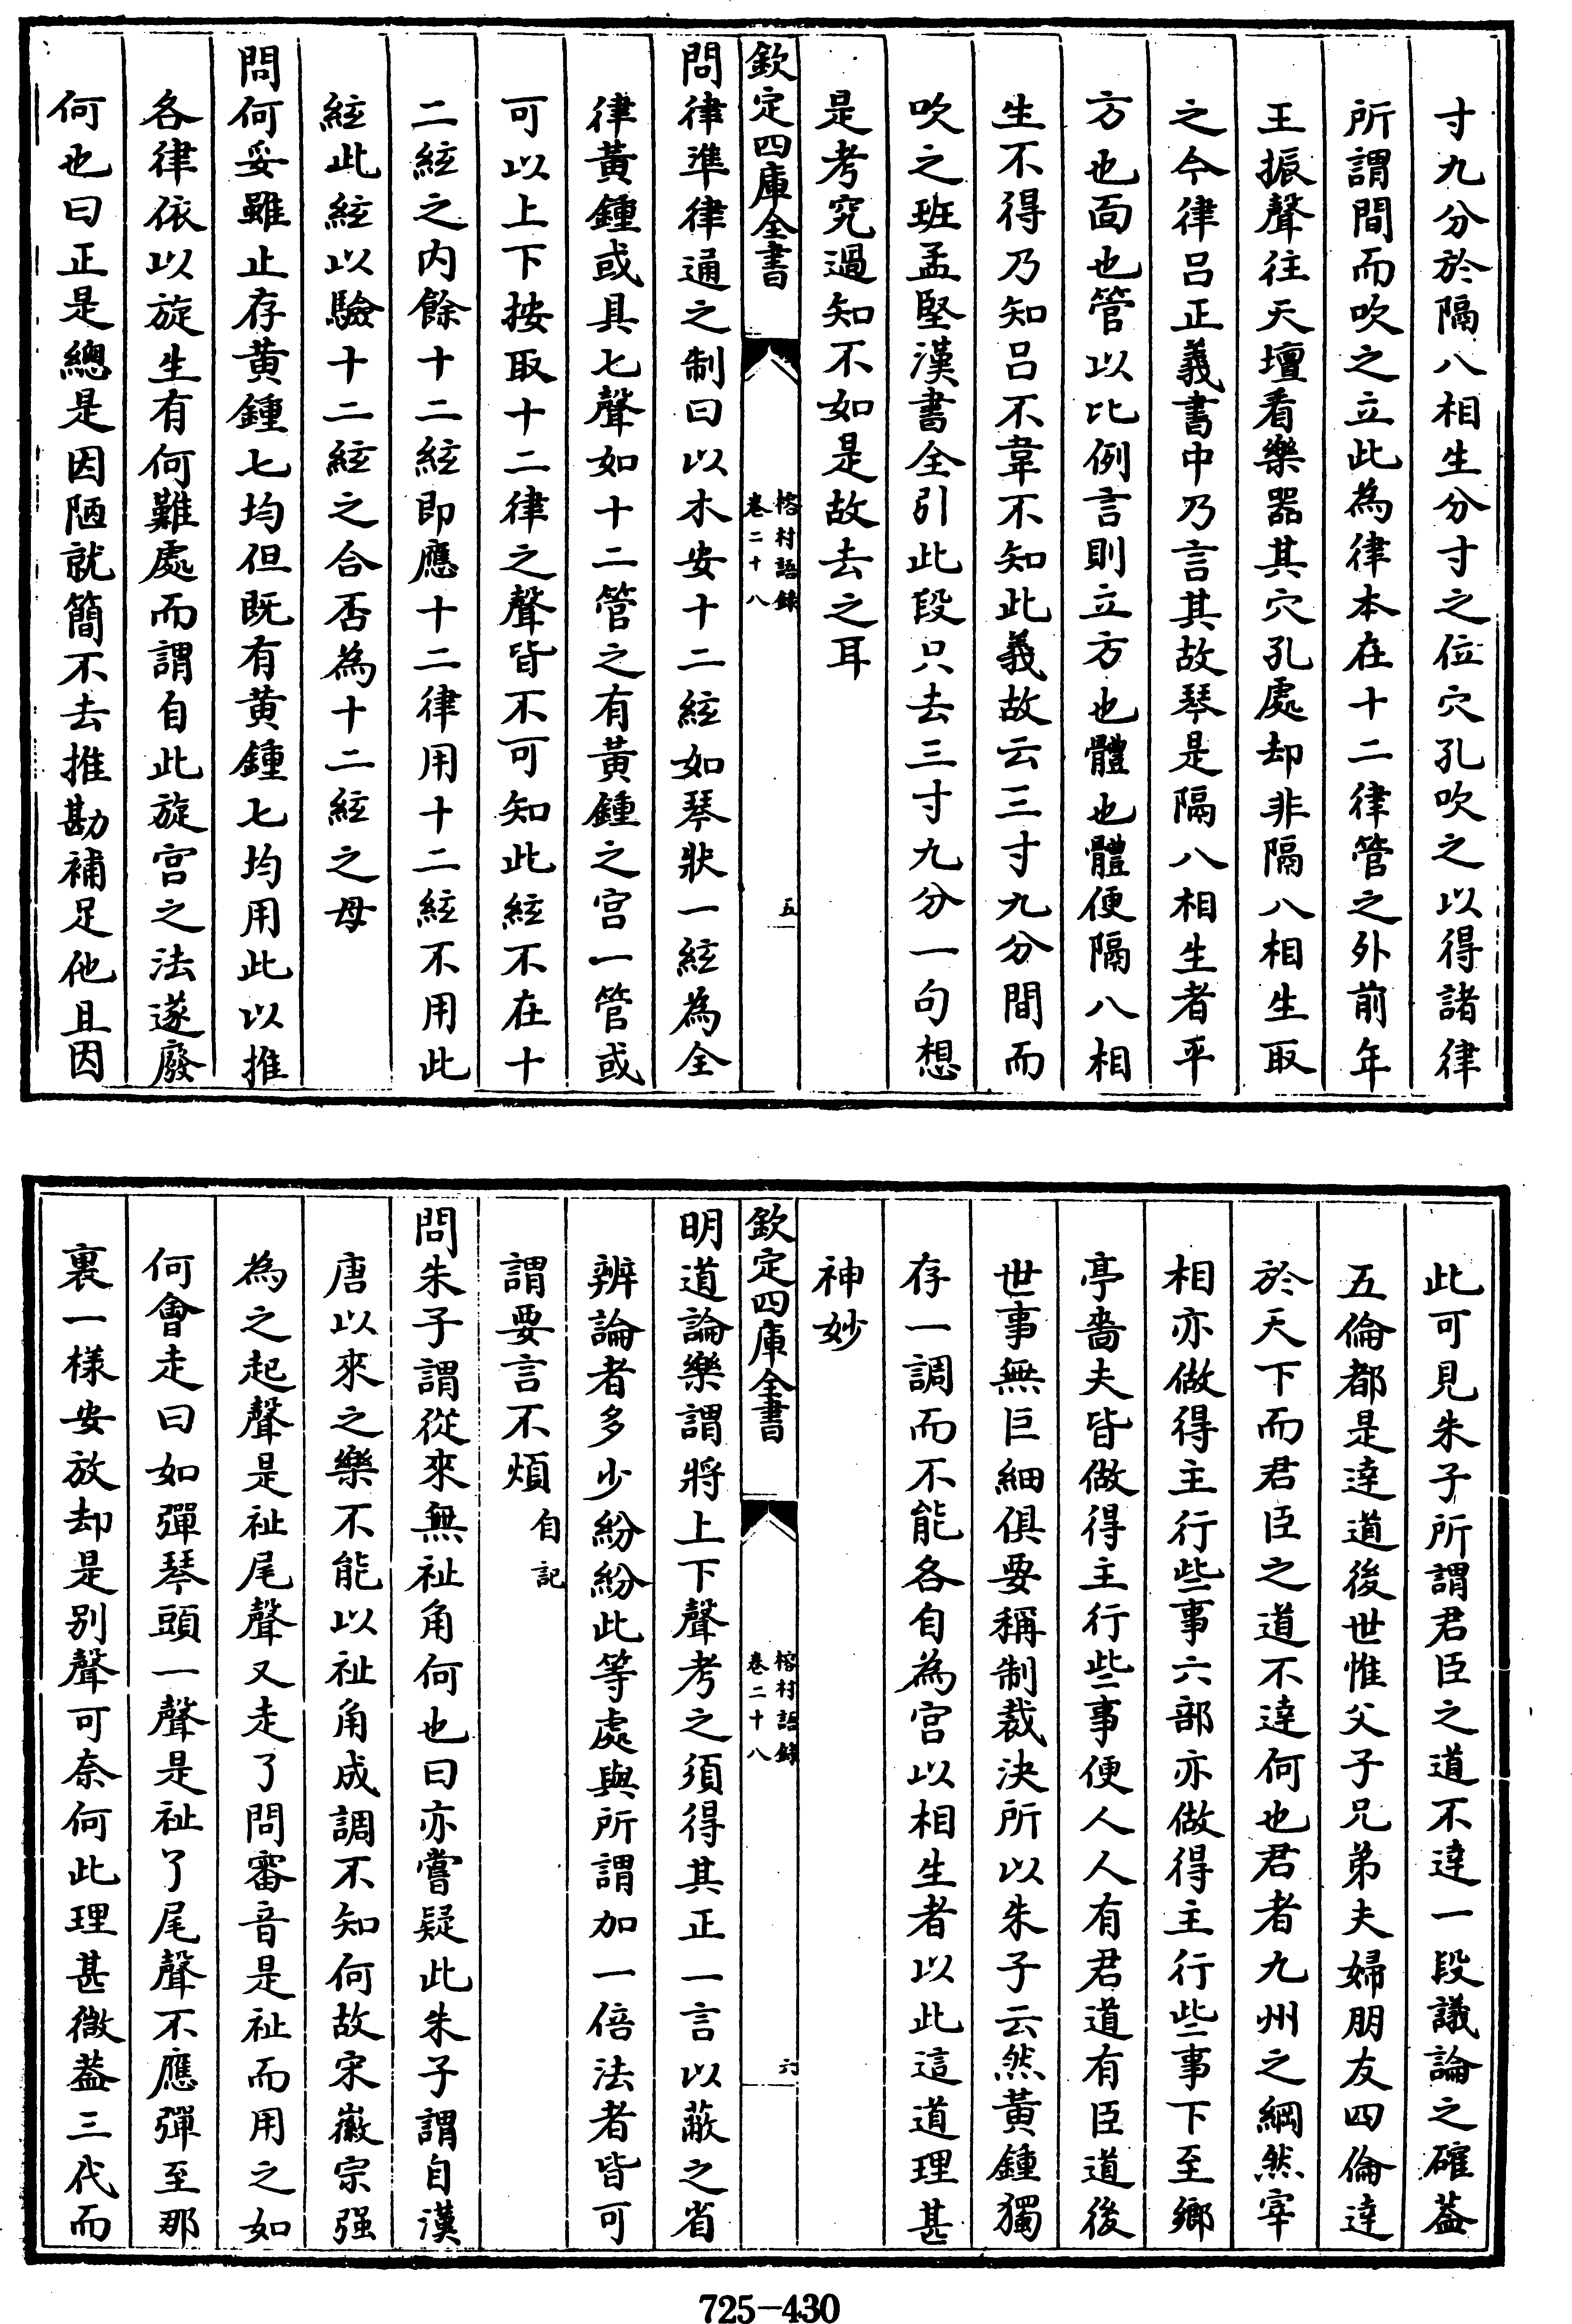 寸九分於隔八相生分寸之位穴孔吹之以得諸律
所謂間而吹之立此為律本在十二律管之外前年
王振聲往天壇看樂器其穴孔處却非隔八相生取
之今律呂正義書中乃言其故琴是隔八相生者平
方也面也管以比例言則立方也體也體便隔八相
生不得乃知呂不韋不知此義故云三寸九分間而
吹之班孟堅漢書全引此段只去三寸九分一句想
是考究過知不如是故去之耳
欽定四庫全書
榕村語錄
卷二十八
五
問律準律通之制曰以木安十二絃如琴狀一絃為全
律黃鍾或具七聲如十二管之有黃鍾之宮一管或
可以上下按取十二律之聲皆不可知此絃不在十
二絃之内餘十二絃即應十二律用十二絃不用此
絃此絃以驗十二絃之合否為十二絃之母
問何妥雖止存黃鍾七均但既有黃鍾七均用此以推
各律依以旋生有何難處而謂自此旋宮之法遂廢
何也曰正是總是因陋就簡不去推勘補足他且因
此可見朱子所謂君臣之道不達一段議論之確葢
五倫都是達道後世惟父子兄弟夫婦朋友四倫達
於天下而君臣之道不達何也君者九州之綱然宰
相亦做得主行些事六部亦做得主行些事下至鄉
亭嗇夫皆做得主行些事便人人有君道有臣道後
世事無巨細俱要稱制裁決所以朱子云然黃鍾獨
存一調而不能各自為宮以相生者以此這道理甚
神妙
欽定四庫全書
榕村語錄
卷二十八
六
明道論樂謂將上下聲考之須得其正一言以蔽之省
辨論者多少紛紛此等處與所謂加一倍法者皆可
謂要言不煩自記
問朱子謂從來無祉角何也曰亦嘗疑此朱子謂自漢
唐以來之樂不能以祉角成調不知何故宋徽宗强
為之起聲是祉尾聲又走了問審音是祉而用之如
何會走曰如彈琴頭一聲是祉了尾聲不應彈至那
裏一樣安放却是别聲可奈何此理甚微葢三代而
725-430